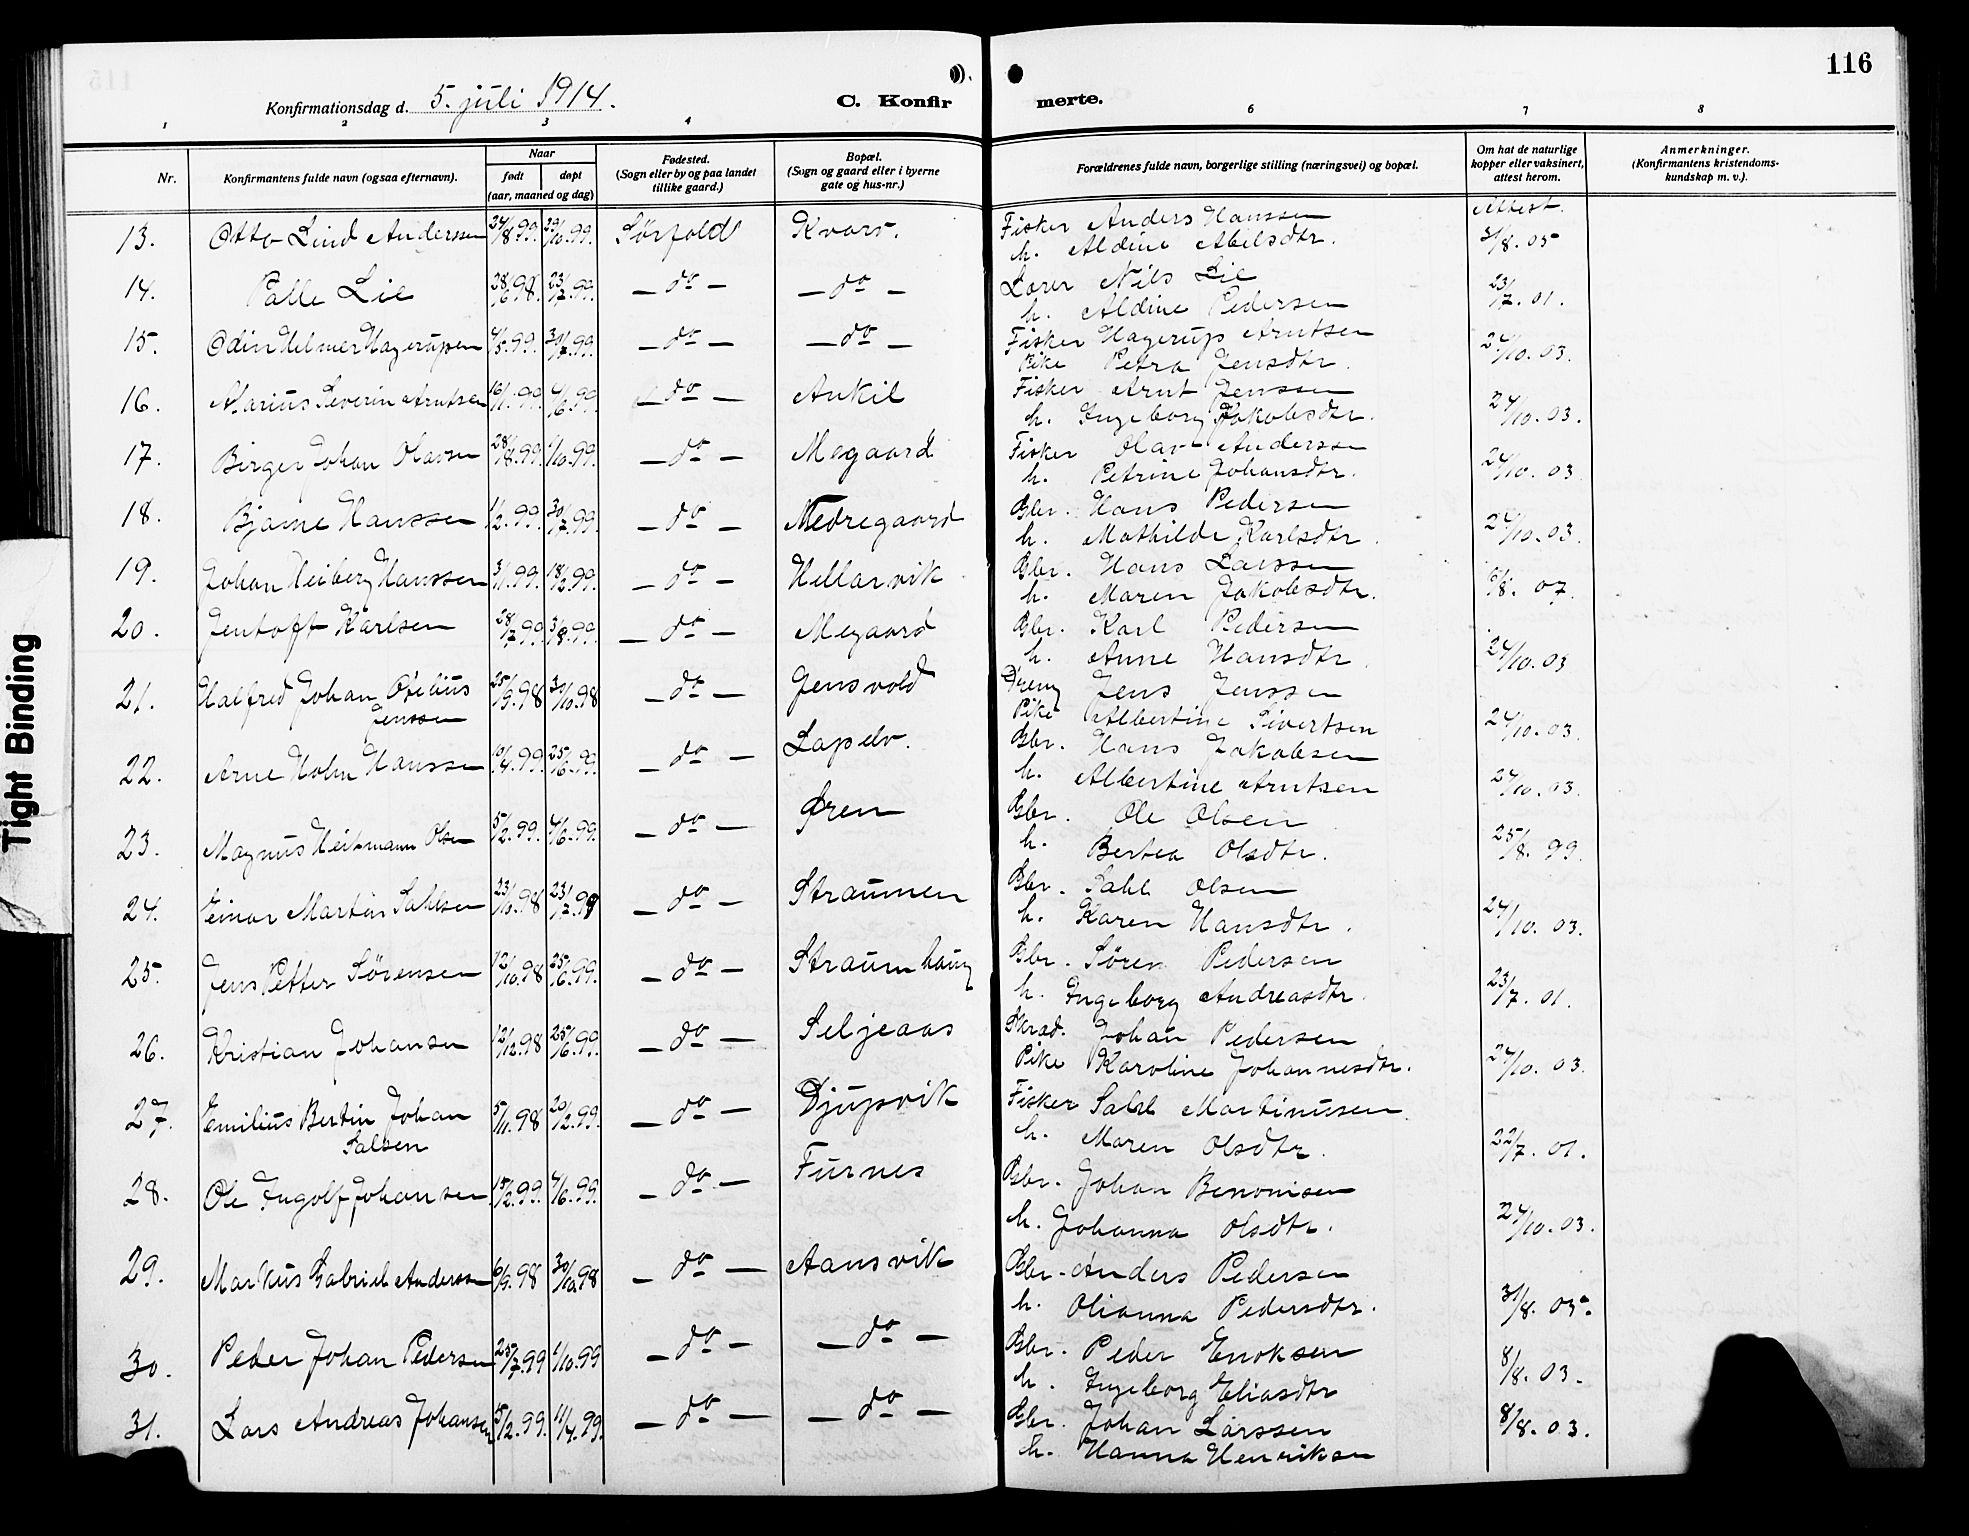 116
Konfirmationsdag d. 5. juli 1914.
C. Konfirmerte.
1 2 3 4 5 6 7 8
Nr. | Konfirmantens fulde navn (ogsaa efternavn). | Naar født døpt (aar, maaned og dag) | Fødested. (Sogn eller by og paa landet tillike gaard.) | Bopæl. (Sogn og gaard eller i byerne gate og hus-nr.) | Forældrenes fulde navn, borgerlige stilling (næringsvei) og bopæl. | Om hat de naturlige kopper eller vaksinert, attest herom. | Anmerkninger. (Konfirmantens kristendomskundskap m. v.).
13. Otto Lind Anderssen 24/8.99. 29/10.99. Sørfold Kvarv. Fisker Anders Hanssen Attest.
h. Aldine Abelsdtr. 31/8.05
14. Palle Lie 28/6.98. 23/7.99. – do – – do – Lærer Nils Lie
h. Aldine Pedersen 23/7.01.
15. Odin Helmer Hagerupsen 4/5.99. 30/7.99. – do – – do – Fisker Hagerup Arntsen
Pike Petra Jensdtr. 24/10.03.
16. Marius Severin Arntsen 16/1.99. 4/6.99. – do – Ankil Fisker Arnt Jenssen
h. Ingeborg Jakobsdtr. 24/10.03.
17. Birger Johan Olavsen 28/8.99. 1/10.99. – do – Megaard Fisker Olav Anderssen
h. Petrine Johansdtr. 24/10.03
18. Bjarne Hanssen 1/2.99. 30/7.99. – do – Nedregaard Gbr. Hans Pedersen
h. Mathilde Karlsdtr. 24/10.03.
19. Johan Heiberg Hanssen 3/1.99. 18/2.99. – do – Hellarvik Gbr. Hans Larssen
h. Maren Jakobsdtr. /8.07.
20. Jentoft Karlsen 28/7.99 3/8.99. – do – Megaard Gbr. Karl Pedersen
h. Anne Hansdtr. 24/10.03
21. Halfred Johan Jenssen 25/9.98 30/10.98 – do – Jensvold Dreng Jens Jenssen
Pike Albertine Sivertsen 24/10.03.
22. Arne Holm Hanssen 10/4.99. 25/6.99. – do – Lapelv. Gbr. Hans Jakobsen
h. Albertine Arntsen 24/10.03.
23. Magnus Heitmann Olsen 5/2.99. 4/6.99. – do – Øren Gbr. Ole Olsen
h. Bertea Olsdtr. 25/8.99.
24. Einar Martin Sahlsen 23/10.98 23/7.99 – do – Straumen Gbr. Sahl Olsen
h. Karen Hansdtr. 24/10.03.
25. Jens Petter Sørensen 12/10.98 25/6.99. – do – Straumhaug Gbr. Søren Pedersen
h. Ingeborg Andreasdtr. 23/7.01.
26. Kristian Johansen 12/12.98 25/6.99. – do – Seljeaas Skræd. Johan Pedersen
Pike Karoline Johannesdtr. 24/10.03.
27. Emilius Bertin Johan Salsen 5/11.98 20/2.99. – do – Djupsvik Fisker Sahl Martinusen
h. Maren Olsdtr. 22/7.01.
28. Ole Ingolf Johansen 15/2.99. 4/6.99. – do – Furnes Gbr. Johan Benonisen
h. Johanna Olsdtr. 24/10.03.
29. Markus Gabriel Anderssen 6/9.98 30/10.98 – do – Aansvik Gbr. Anders Pedersen
h. Olianna Pedersdtr. 31/8.05.
30. Peder Johan Pedersen 25/7.99 1/10.99 – do – – do – Gbr. Peder Enoksen 8/8.03.
h. Ingeborg Eliasdtr
31. Lars Andreas Johansen 15/2.99. 11/4.99. – do – – do – Gbr. Johan Larssen 8/8.03.
h. Hanna Henriksen
Tight Binding